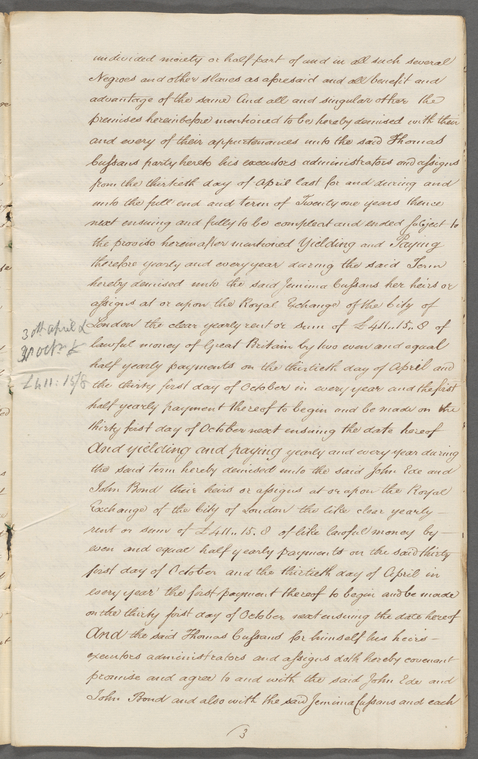 undivided moiety or half part of and in all such several
Negroes and other slaves as aforesaid and all benefit and
advantage of the same And all and singular other the
premises hereinbefore mentioned to be hereby demised with their
and every of their appurtenances unto the said Thomas
Cussans party hereto his executors administrators and assigns
from the thirtieth day of April last for and during and
unto the full end and term of Twenty one years thence
next ensuing and fully to be compleat and ended subject to
the proviso hereinafter mentioned Yielding and Paying
therefore yearly and every year during the said Term
hereby demised unto the said Jemima Cussans her heirs or
assigns at or upon the Royal Exchange of the City of
London the clear yearly rent or sum of £411..15..8 of
lawful money of Great Britain by two even and equal
half yearly payments on the thirtieth day of April and
the thirty first day of October in every year and the first
half yearly payment thereof to begin and be made on the
thirty first day of October next ensuing the date hereof
And yielding and paying yearly and every year during
the said term hereby demised unto the said John Ede and
John Bond their heirs or assigns at or upon the Royal
Exchange of the City of London the like clear yearly –
rent or sum of £411..15..8 of like lawful money by –
even and equal half yearly payments on the said thirty
first day of October and the thirtieth day of April in
every year the first payment thereof to begin and be made
on the thirty first day of October next ensuing the date hereof
And the said Thomas Cussans for himself his heirs –
executors administrators and assigns doth hereby covenant
promise and agree to and with the said John Ede and
John Bond and also with the said Jemima Cussans and each
30th April &
31 Octr
£411:15/8
3